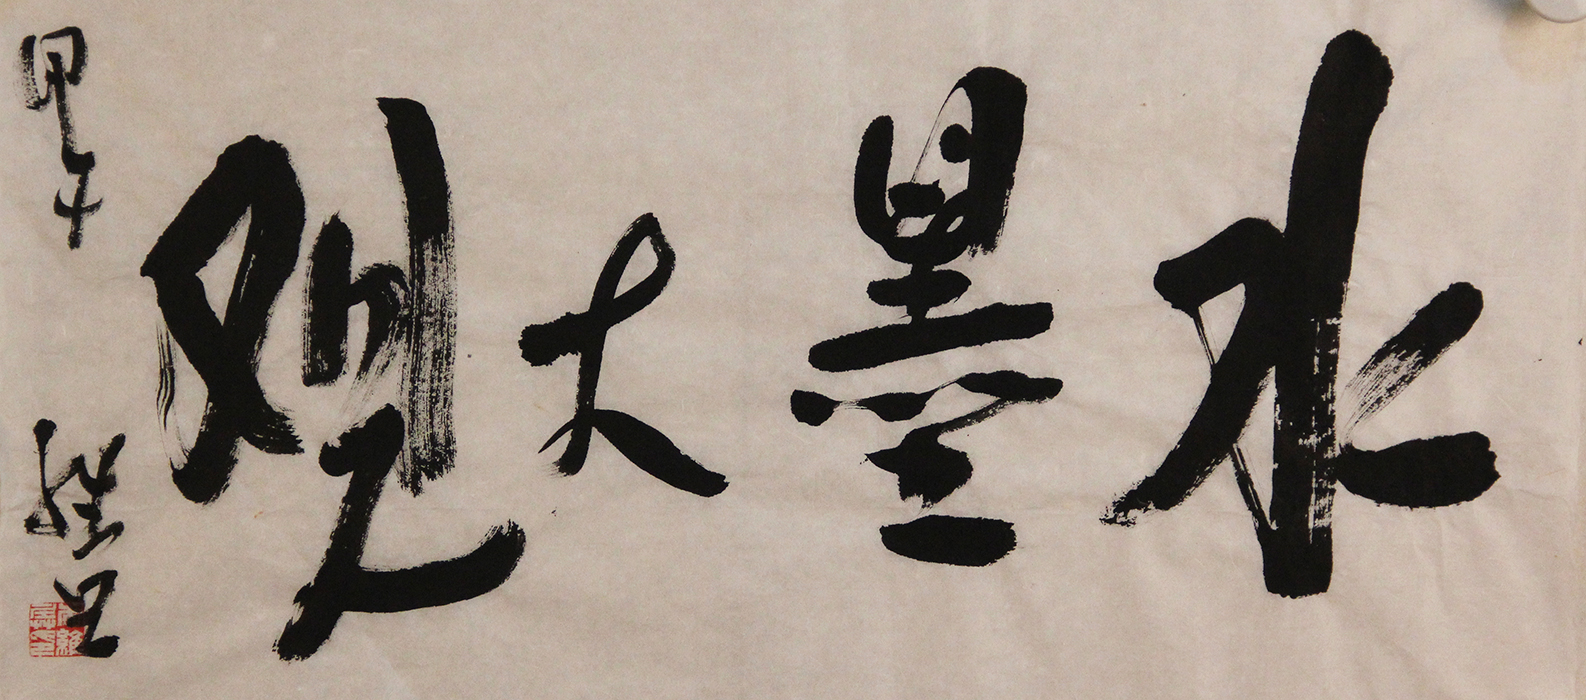 水墨大观
甲午